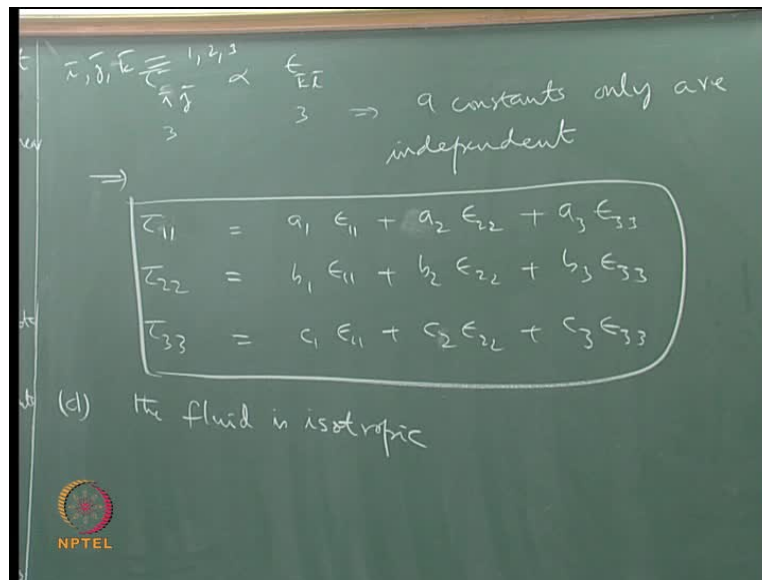 ī, j̄, k̄ = 1, 2, 3
τ īj̄ ∝ ϵ k̄l̄
3 3 ⇒ 9 constants only are
independent
⇒
τ₁₁ = a₁ ϵ₁₁ + a₂ ϵ₂₂ + a₃ ϵ₃₃
τ₂₂ = b₁ ϵ₁₁ + b₂ ϵ₂₂ + b₃ ϵ₃₃
τ₃₃ = c₁ ϵ₁₁ + c₂ ϵ₂₂ + c₃ ϵ₃₃
(d) the fluid is isotropic
NPTEL